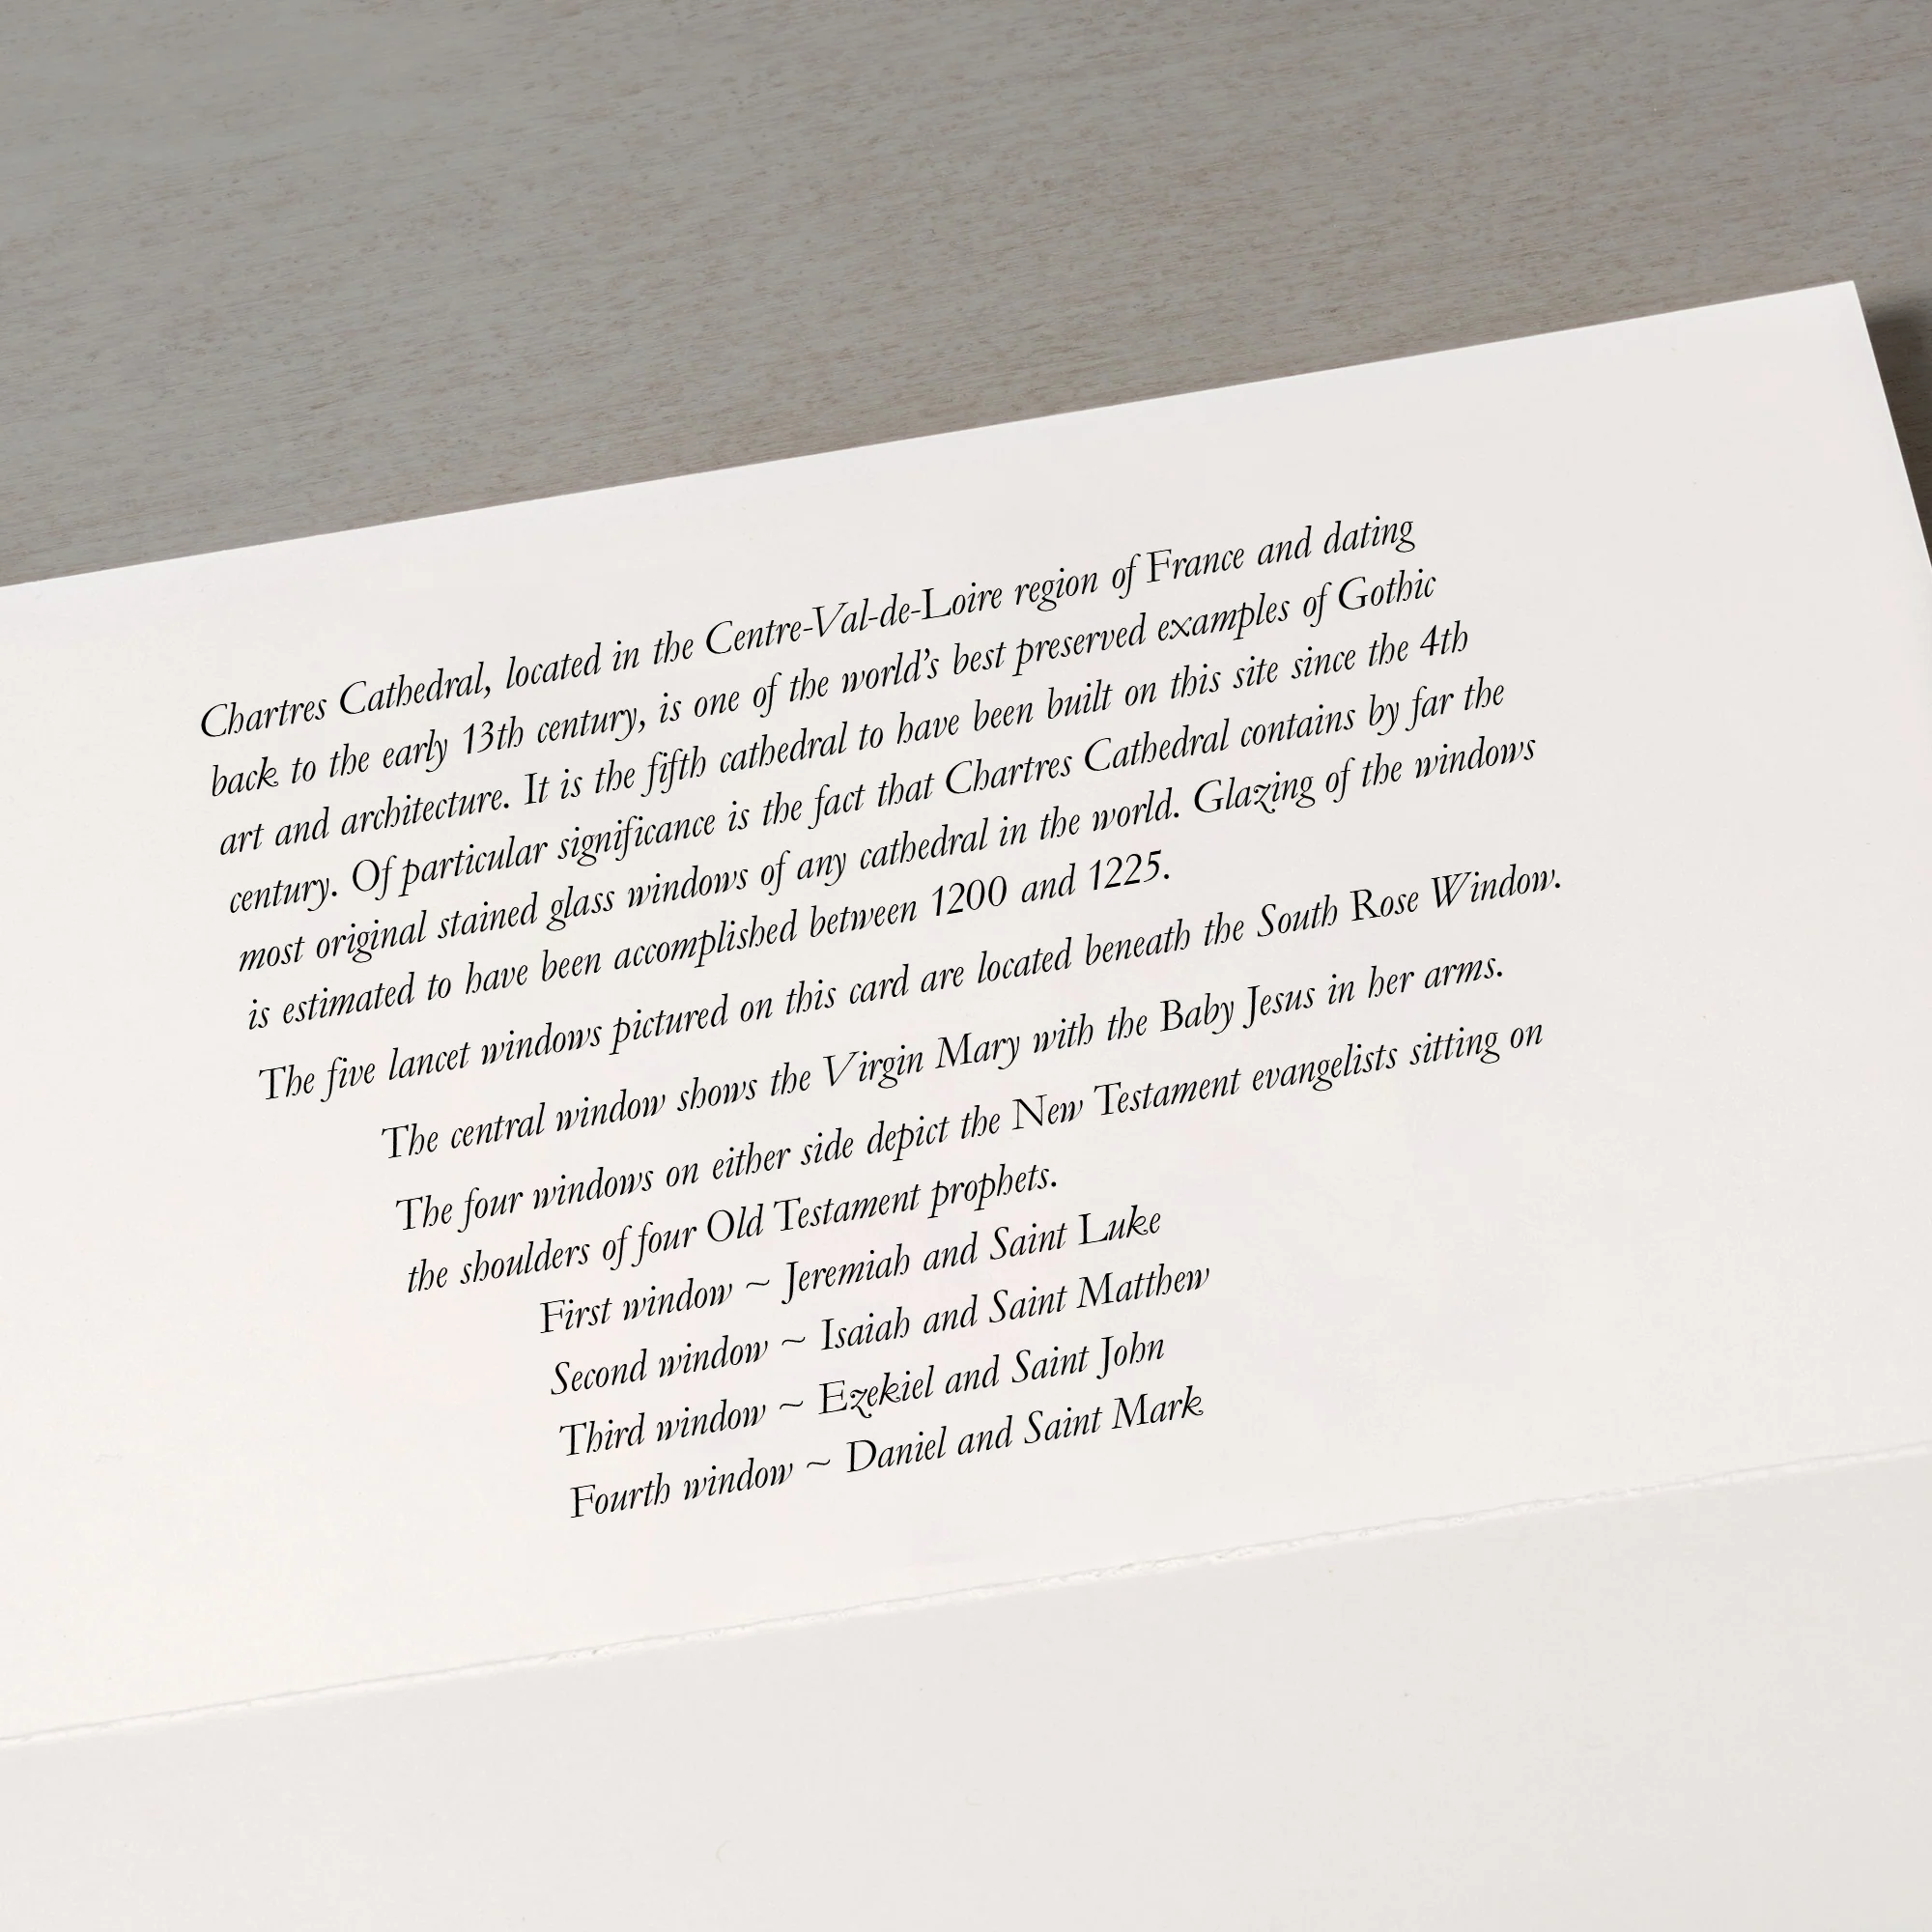 Chartres Cathedral, located in the Centre-Val-de-Loire region of France and dating
back to the early 13th century, is one of the world’s best preserved examples of Gothic
art and architecture. It is the fifth cathedral to have been built on this site since the 4th
century. Of particular significance is the fact that Chartres Cathedral contains by far the
most original stained glass windows of any cathedral in the world. Glazing of the windows
is estimated to have been accomplished between 1200 and 1225.
The five lancet windows pictured on this card are located beneath the South Rose Window.
The central window shows the Virgin Mary with the Baby Jesus in her arms.
The four windows on either side depict the New Testament evangelists sitting on
the shoulders of four Old Testament prophets.
First window ~ Jeremiah and Saint Luke
Second window ~ Isaiah and Saint Matthew
Third window ~ Ezekiel and Saint John
Fourth window ~ Daniel and Saint Mark